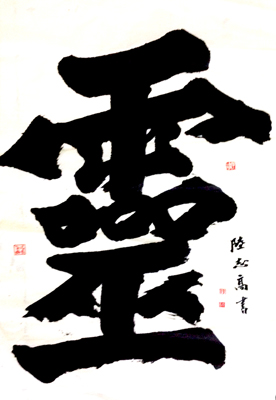 靈
陸志高書